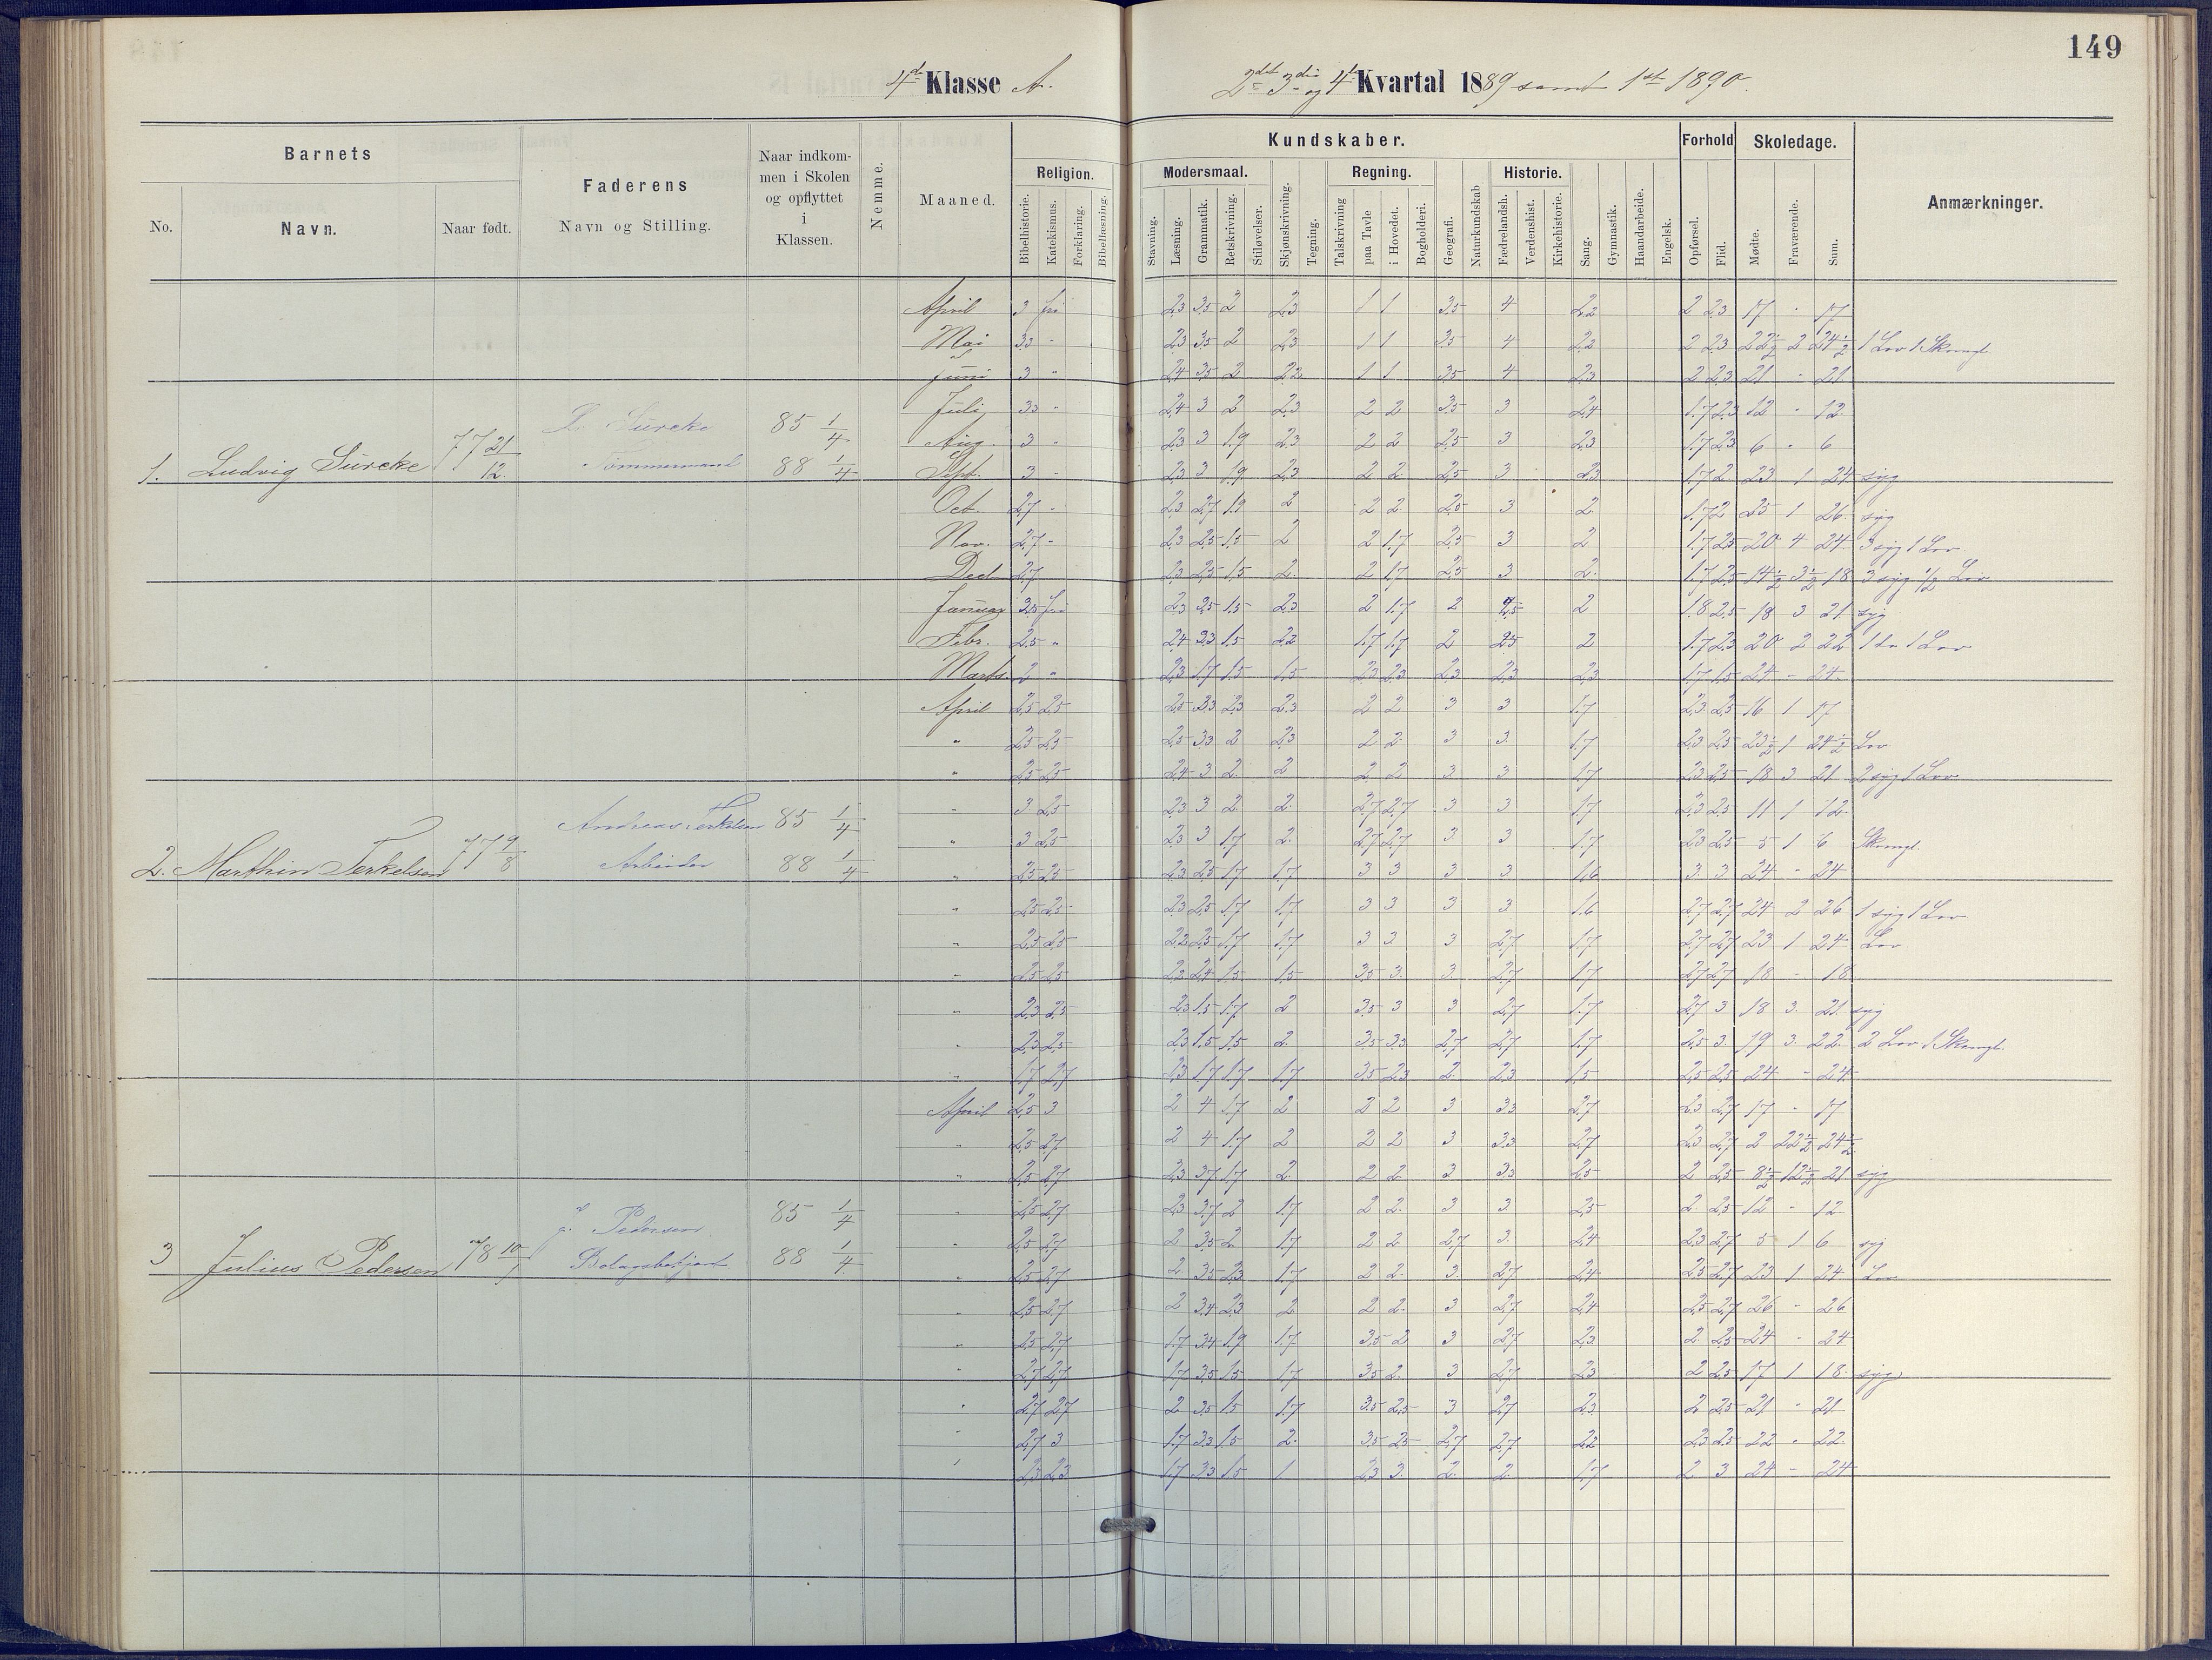 149
4de Klasse A.
2det 3die og 4de Kvartal 1889 samt 1st 1890.
Barnets
No.
Navn.
Naar født.
Faderens
Navn og Stilling.
Naar indkom-
men i Skolen
og opflyttet
i
Klassen.
Nemme.
Maaned.
Kundskaber.
Religion.
Bibelhistorie.
Katekismus.
Forklaring.
Bibellæsning.
Modersmaal.
Stavning.
Læsning.
Grammatik.
Retskrivning.
Stiløvelser.
Skjønskrivning.
Tegning.
Regning.
Talskrivning
paa Tavle
i Hovedet.
Bogholderi.
Geografi.
Naturkundskab
Historie.
Fædrelandsh.
Verdenshist.
Kirkehistorie.
Sang.
Gymnastik.
Haandarbeide.
Engelsk.
Forhold
Opførsel.
Flid.
Skoledage.
Mødte.
Fraværende.
Sum.
Anmærkninger.
1. Ludvig Surcke 77 21/12
Surcke
Tømmermand
85 1/4
88 1/4
April 3 fri 2,3 3,5 2 2,3 1 1 3,5 4 2,2 2 2,3 17 - 17
Mai 3,3 - 2,3 3,5 2 2,3 1 1 3,5 4 2,2 2 2,3 22 1/2 2 24 1/2
Juni 3 " 2,4 3,5 2 2,2 1 1 3,5 4 2,3 2 2,3 21 - 21
Juli 3,3 - 2,4 3 2 2,3 2 2 3,5 3 2,4 1,7 2,3 12 - 12
Aug. 3 - 2,3 3 1,9 2,3 2 2 2,5 3 2,3 1,7 2,3 6 - 6
Sept. 3 - 2,3 3 1,9 2,3 2 2 2,5 3 2,3 1,7 2 23 1 24 syg
Oct. 2,7 - 2,3 2,7 1,9 2 2 2 2,5 3 2 1,7 2 25 1 26 syg
Nov. 2,7 - 2,3 2,5 1,5 2 2 1,7 2,5 3 2 1,7 2,5 20 4 24 3 syg 1 Lov
Decb 2,7 2,3 2,5 1,5 2 2 1,7 2,5 3 2 1,7 2,5 14 1/2 3 1/2 18 3 syg 1/2 Lov
Januar 2,5 fri 2,3 2,5 1,5 2,3 2 1,7 2 2,5 2 1,8 2,5 18 3 21 syg
Febr. 2,5 " 2,4 2,3 1,5 2,2 1,7 1,7 2 2,5 2 1,7 2,3 20 2 22
Marts 2 " 2,3 1,7 1,5 1,5 2,3 2,3 2,3 2,3 2,3 1,7 1,5 24 - 24
2. Marthin Terkelsen 77 9/8
Andreas Terkelsen
Arbeider
85 1/4
88 1/4
April 2,5 2,5 2,5 3,3 2,3 2,3 2 2 3 3 1,7 2,3 2,5 16 1 17
" 2,5 2,5 2,5 3,3 2 2,3 2 2 3 3 1,7 2,3 2,5 23 1/2 1 24 1/2 Lov
" 2,5 2,5 2,4 3 2 2 2 2 3 3 1,7 2,3 2,5 18 3 21 2 syg 1 Lov
" 3 2,5 2,3 3 2 2 2,7 2,7 3 3 1,7 2,3 2,5 11 1 12
" 3 2,5 2,3 3 1,7 2 2,7 2,7 3 3 1,7 2,3 2,5 5 1 6
" 2,5 2,5 2,3 2,5 1,7 1,7 3 3 3 3 1,6 3 3 24 - 24
" 2,5 2,5 2,3 2,5 1,7 1,7 3 3 3 3 1,6 2,7 2,7 24 2 26 1 syg 1 Lov
" 2,5 2,5 2,2 2,5 1,7 1,7 3 3 3 2,7 1,7 2,7 2,7 23 1 24 Lov
" 2,5 2,5 2,2 2,4 1,5 1,5 3,5 3 3 2,7 1,7 2,7 2,7 18 - 18
" 2,3 2,5 2,3 1,5 1,7 2 3,5 3 3 2,7 1,7 2,7 3 18 3 21 syg
" 2,3 2,5 2,3 1,5 1,5 2 3,5 3,3 2,7 2,7 1,7 2,5 3 19 3 22
" 1,7 2,7 2,3 1,7 1,7 1,7 3,5 2,3 2 2,3 1,5 2,5 2,5 24 - 24
3 Julius Pedersen 78 10/1
Pedersen
85 1/4
88 1/4
April 2,5 3 2 4 1,7 2 2 2 3 3,3 2,7 2,3 2,7 17 - 17
" 2,5 2,7 2 4 1,7 2 2 2 3 3,3 2,7 2,3 2,7 2 22 1/2 24 1/2
" 2,5 2,7 2,3 3,7 1,7 2 2 2 3 3,3 2,5 2 2,5 8 1/2 12 1/2 21 syg
" 2,5 2,7 2,3 3,7 2 1,7 2 2 3 3 2,5 2 2,5 12 - 12
" 2,5 2,7 2 3,5 2 1,7 2 2 2,7 3 2,4 2,3 2,7 5 1 6 syg
" 2,5 2,7 2 3,5 2,3 1,7 2 2 3 2,7 2,4 2,5 2,7 23 1 24 Lov
" 2,5 2,7 2 3,4 2,3 2 2 2 3 2,7 2,4 2,5 2,7 26 - 26
" 2,5 2,7 1,7 3,4 1,9 1,7 3,5 2 3 2,7 2,3 2 2,5 24 - 24
" 2,7 2,7 1,7 3,5 1,5 1,7 3,5 2 3 2,7 2,3 2 2,5 17 1 18 syg
" 2,7 2,7 2 3,5 1,5 1,7 3,5 2,5 3 2,7 2,3 2 2,5 21 - 21
" 2,7 3 1,7 3,3 1,5 2 3,5 2,5 2,7 2,7 2,2 2,3 2,5 22 - 22
" 2,3 2,3 1,7 3,3 1,5 1 2,3 3 2 2 1,7 2 3 24 - 24